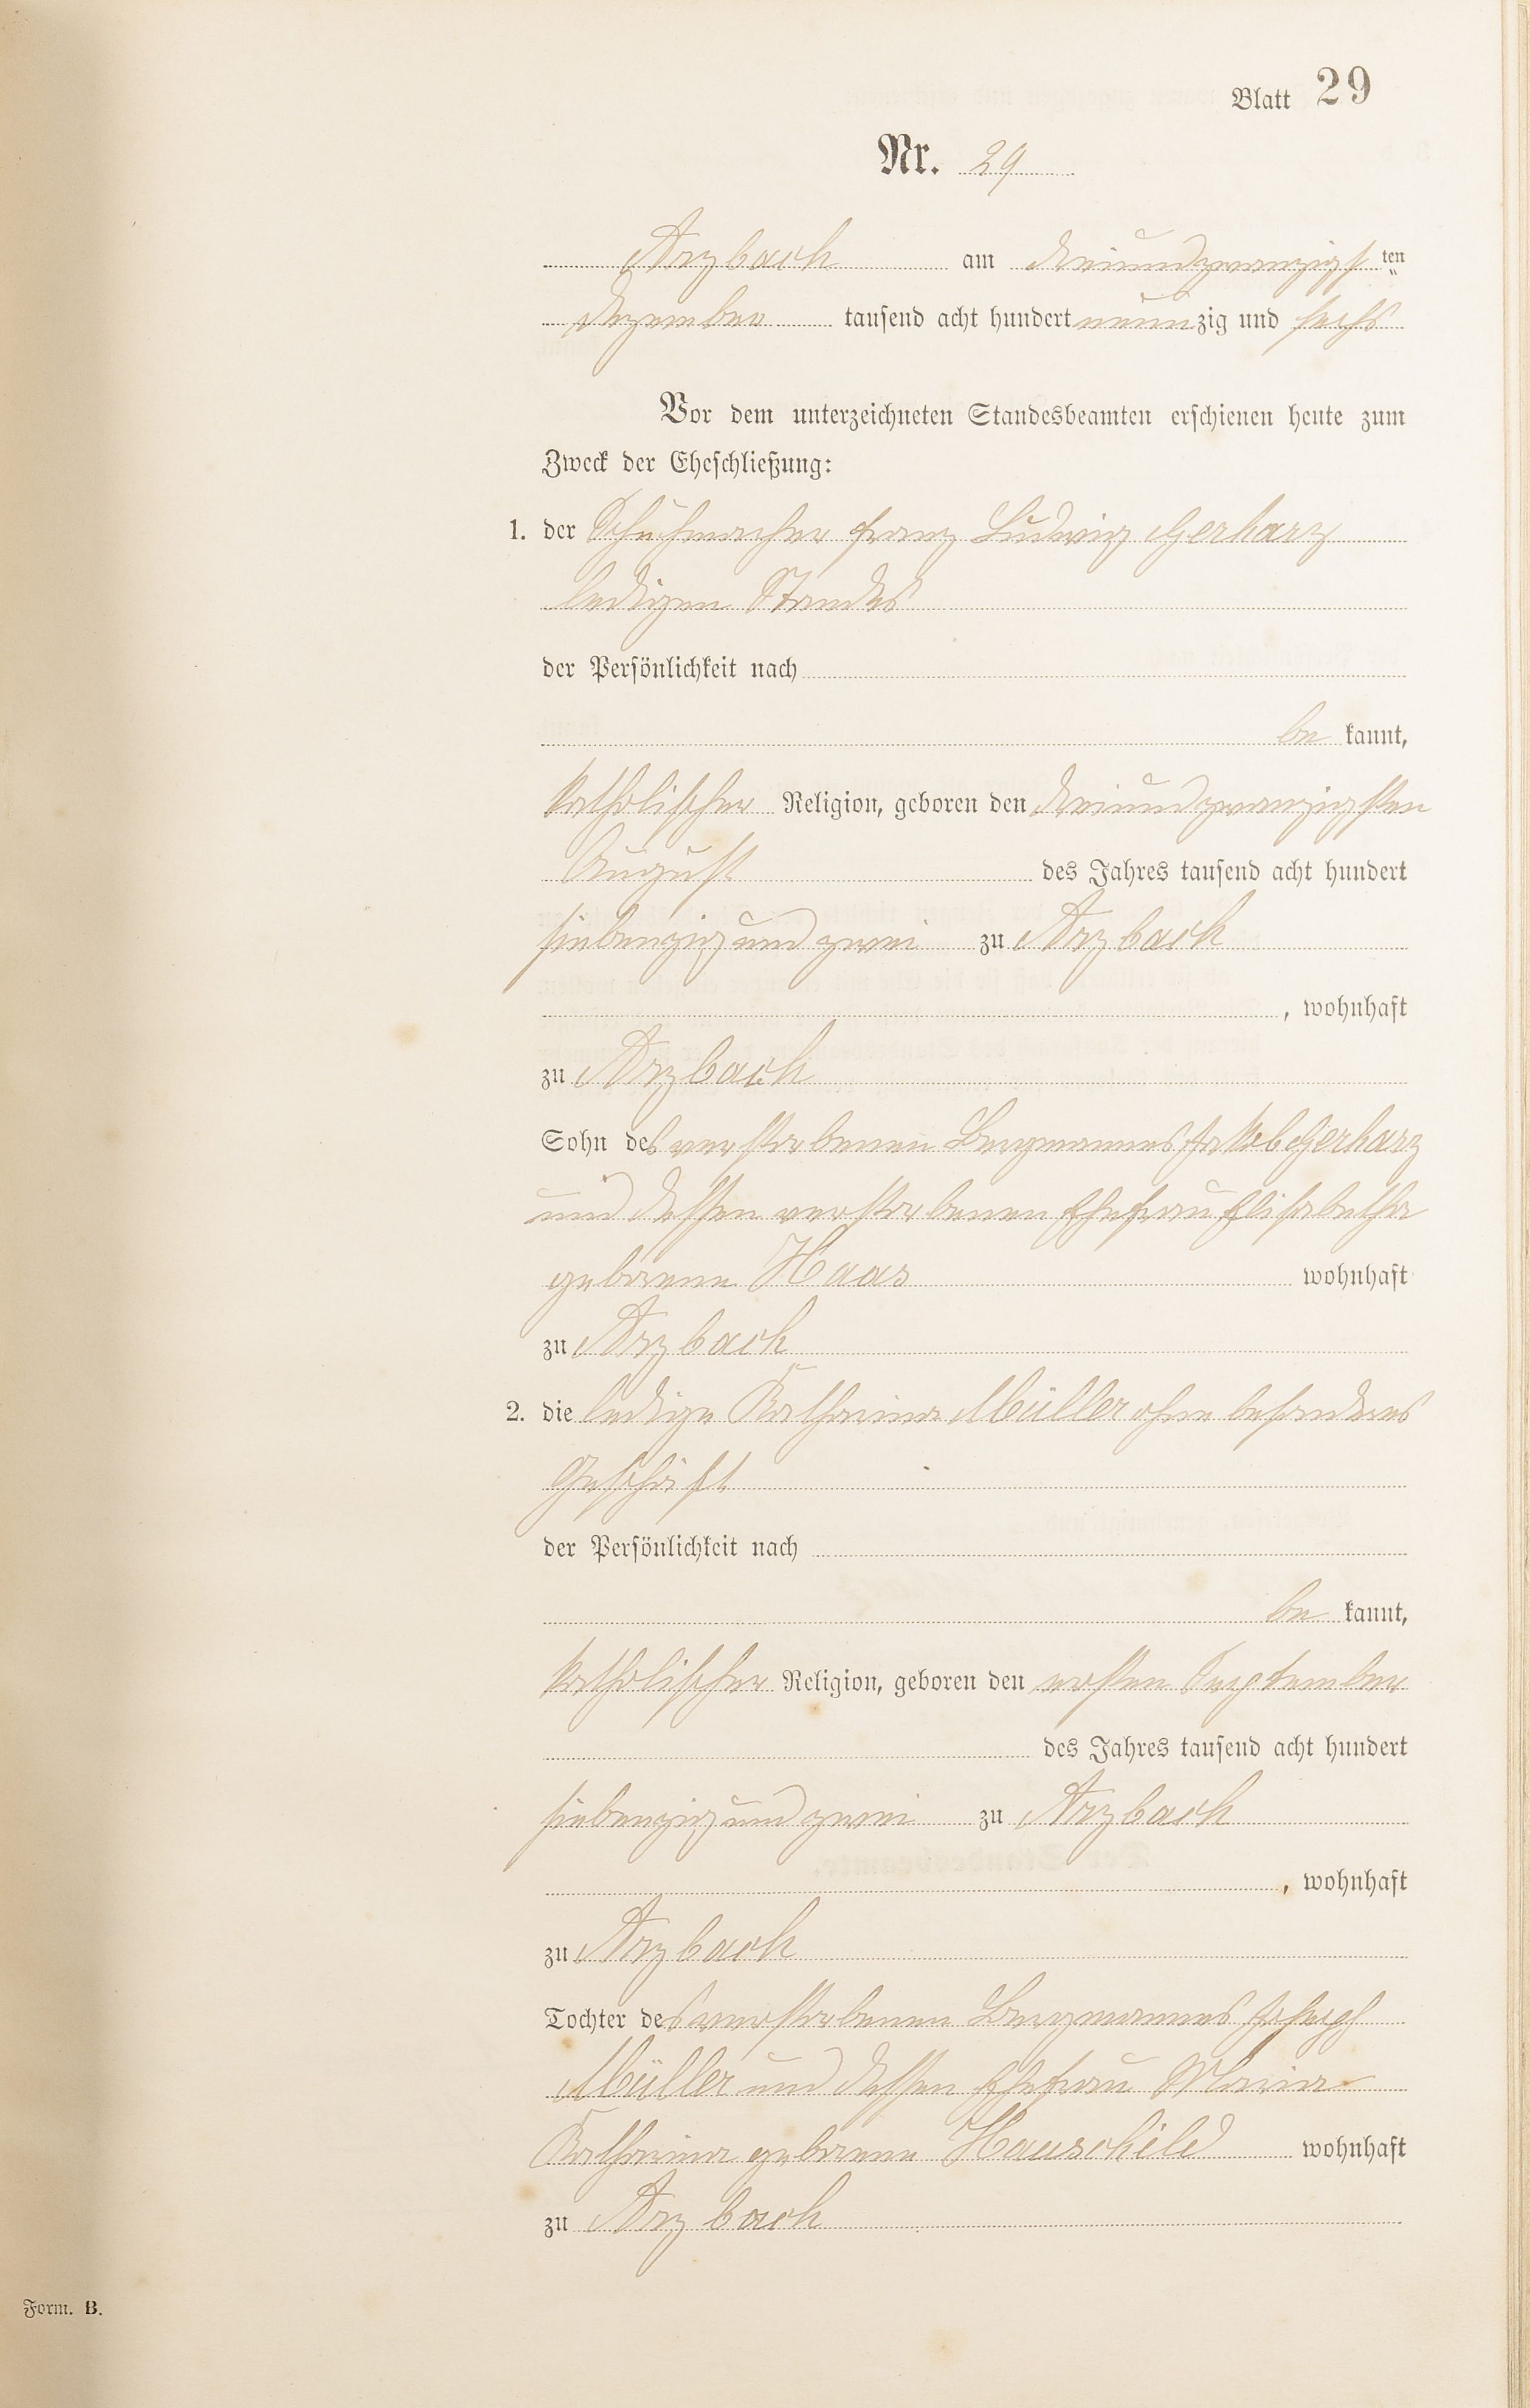 Blatt 29
Nr. 29
Arzbach am dreiundzwanzigsten
Dezember tausend acht hundert neunzig und sechs
Vor dem unterzeichneten Standesbeamten erschienen heute zum
Zweck der Eheschließung:
1. der Schuhmacher Franz Ludwig Gerharz
ledigen Standes
der Persönlichkeit nach
be kannt,
katholischer Religion, geboren den dreiundzwanzigsten
August des Jahres tausend acht hundert
siebenzig und zwei zu Arzbach
, wohnhaft
zu Arzbach
Sohn des verstorbenen Bergmannes Jakob Gerharz
und dessen verstorbenen Ehefrau Elisabetha
geborene Haas wohnhaft
zu Arzbach
2. die ledige Katharina Müller ohne besonderes
Geschäft
der Persönlichkeit nach
be kannt,
katholischer Religion, geboren den ersten September
des Jahres tausend acht hundert
siebenzig und zwei zu Arzbach
, wohnhaft
zu Arzbach
Tochter des verstorbenen Bergmannes Joseph
Müller und dessen Ehefrau Maria
Katharina geborene Hauschild wohnhaft
zu Arzbach
Form. B.